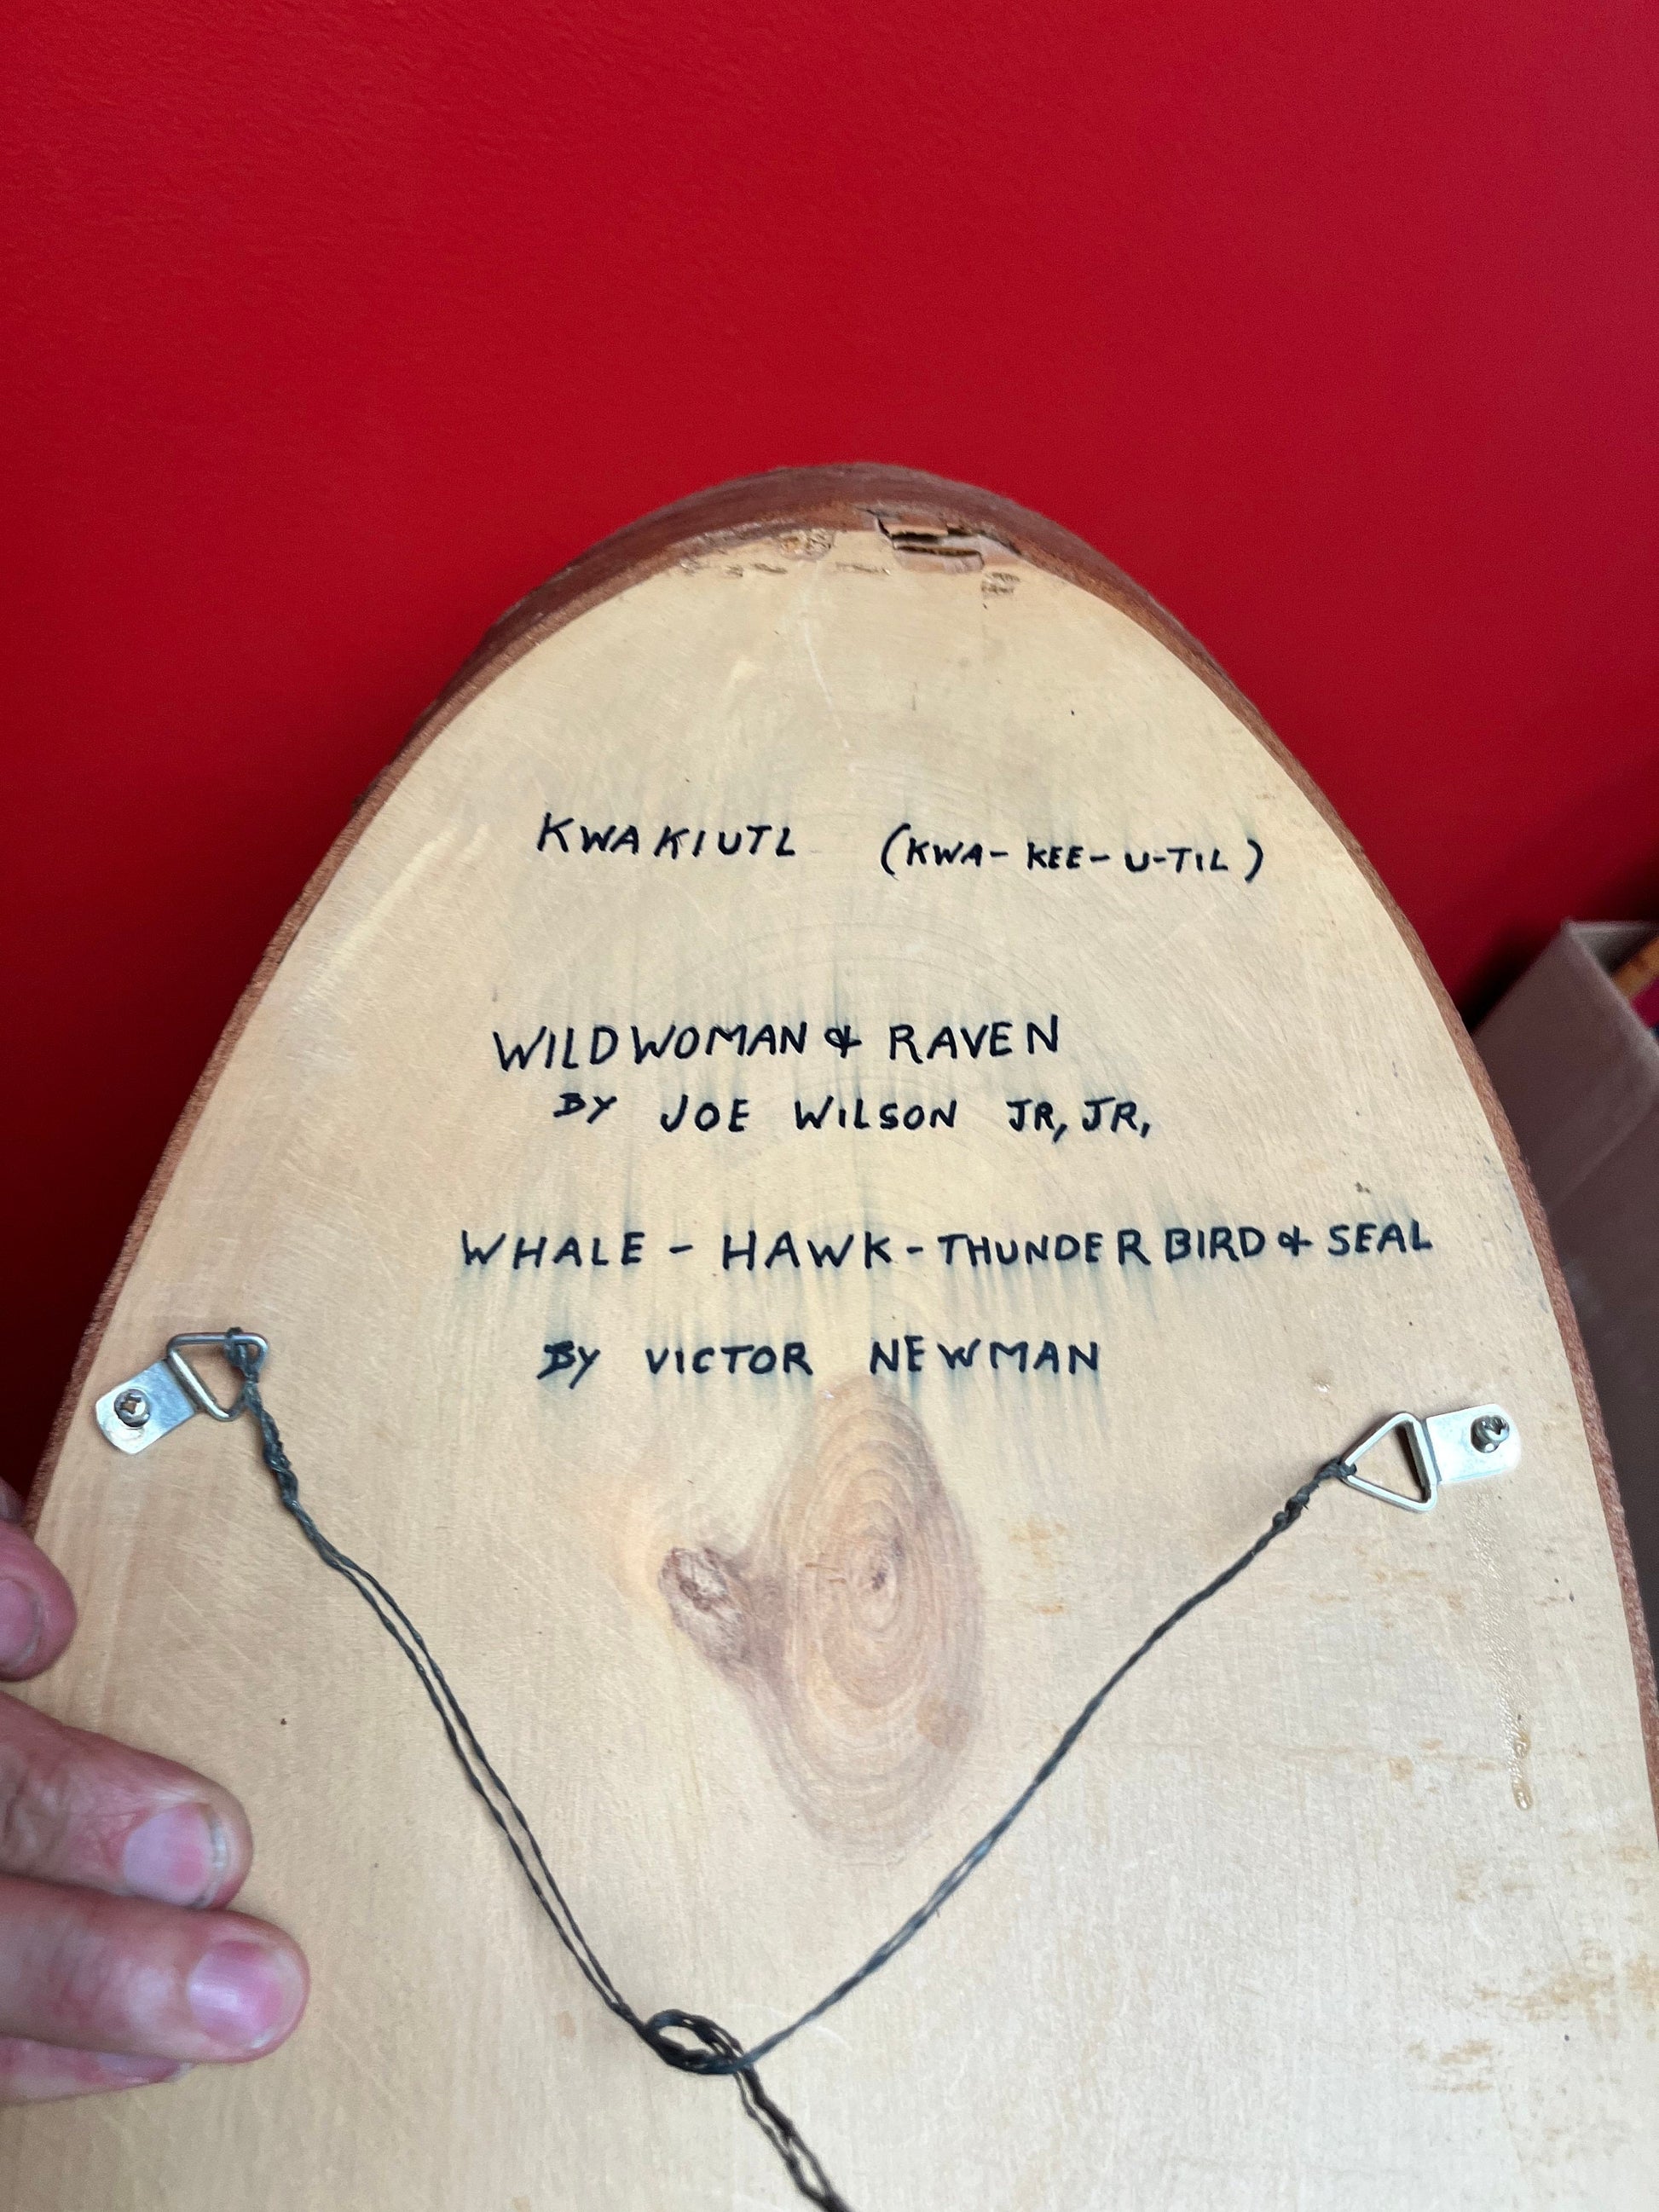 KWAKIUTL (KWA-KEE-U-TIL)
WILDWOMAN & RAVEN
BY JOE WILSON JR, JR,
WHALE - HAWK - THUNDERBIRD & SEAL
BY VICTOR NEWMAN